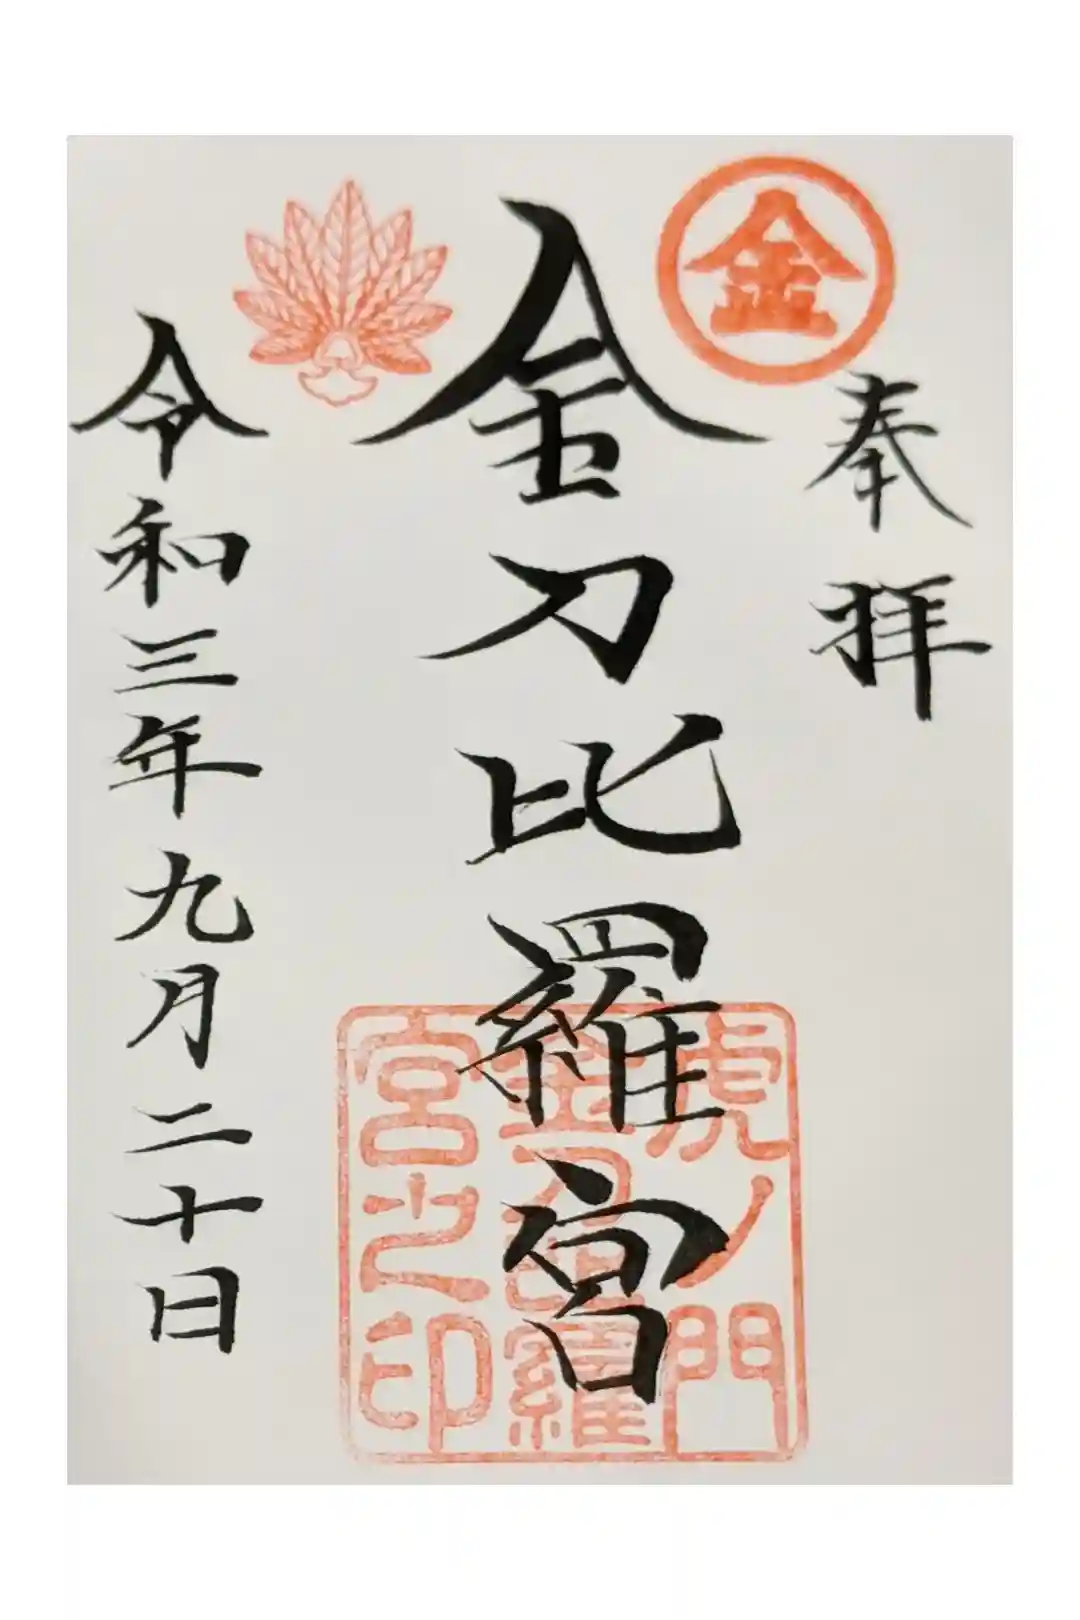 金
奉拝
金刀比羅宮
虎ノ門
金刀比羅
宮之印
令和三年九月二十日